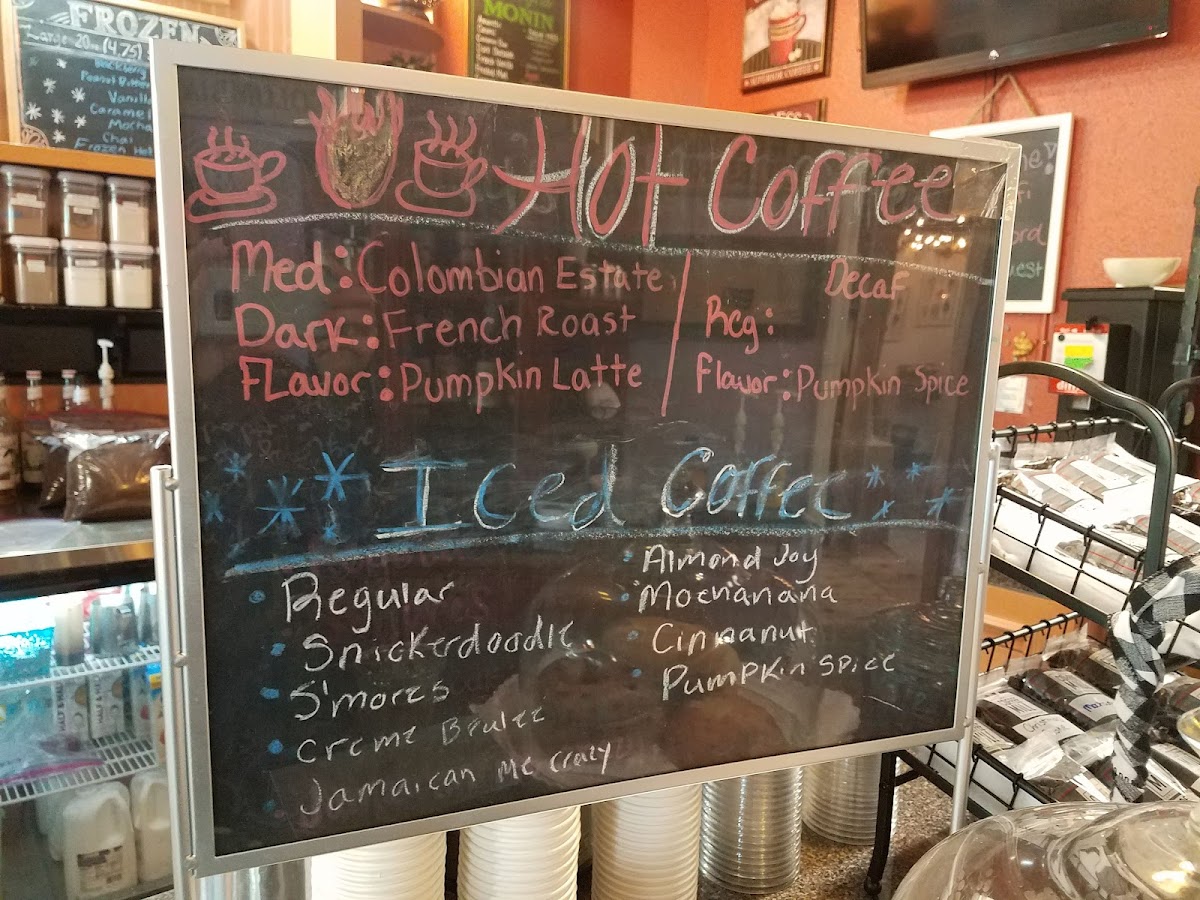 FROZEN
Large-20oz (4.75)
Peanut Butter
Vanilla
Caramel
Mocha
Chai
Frozen Hot
MONIN
Hot Coffee
Med: Colombian Estate
Dark: French Roast
FLavor: Pumpkin Latte
Decaf
Reg:
Flavor: Pumpkin Spice
Iced Coffee
Regular
Snickerdoodle
S'mores
Creme Brulee
Jamaican Me Crazy
Almond Joy
Mochanana
Cinnanut
Pumpkin Spice